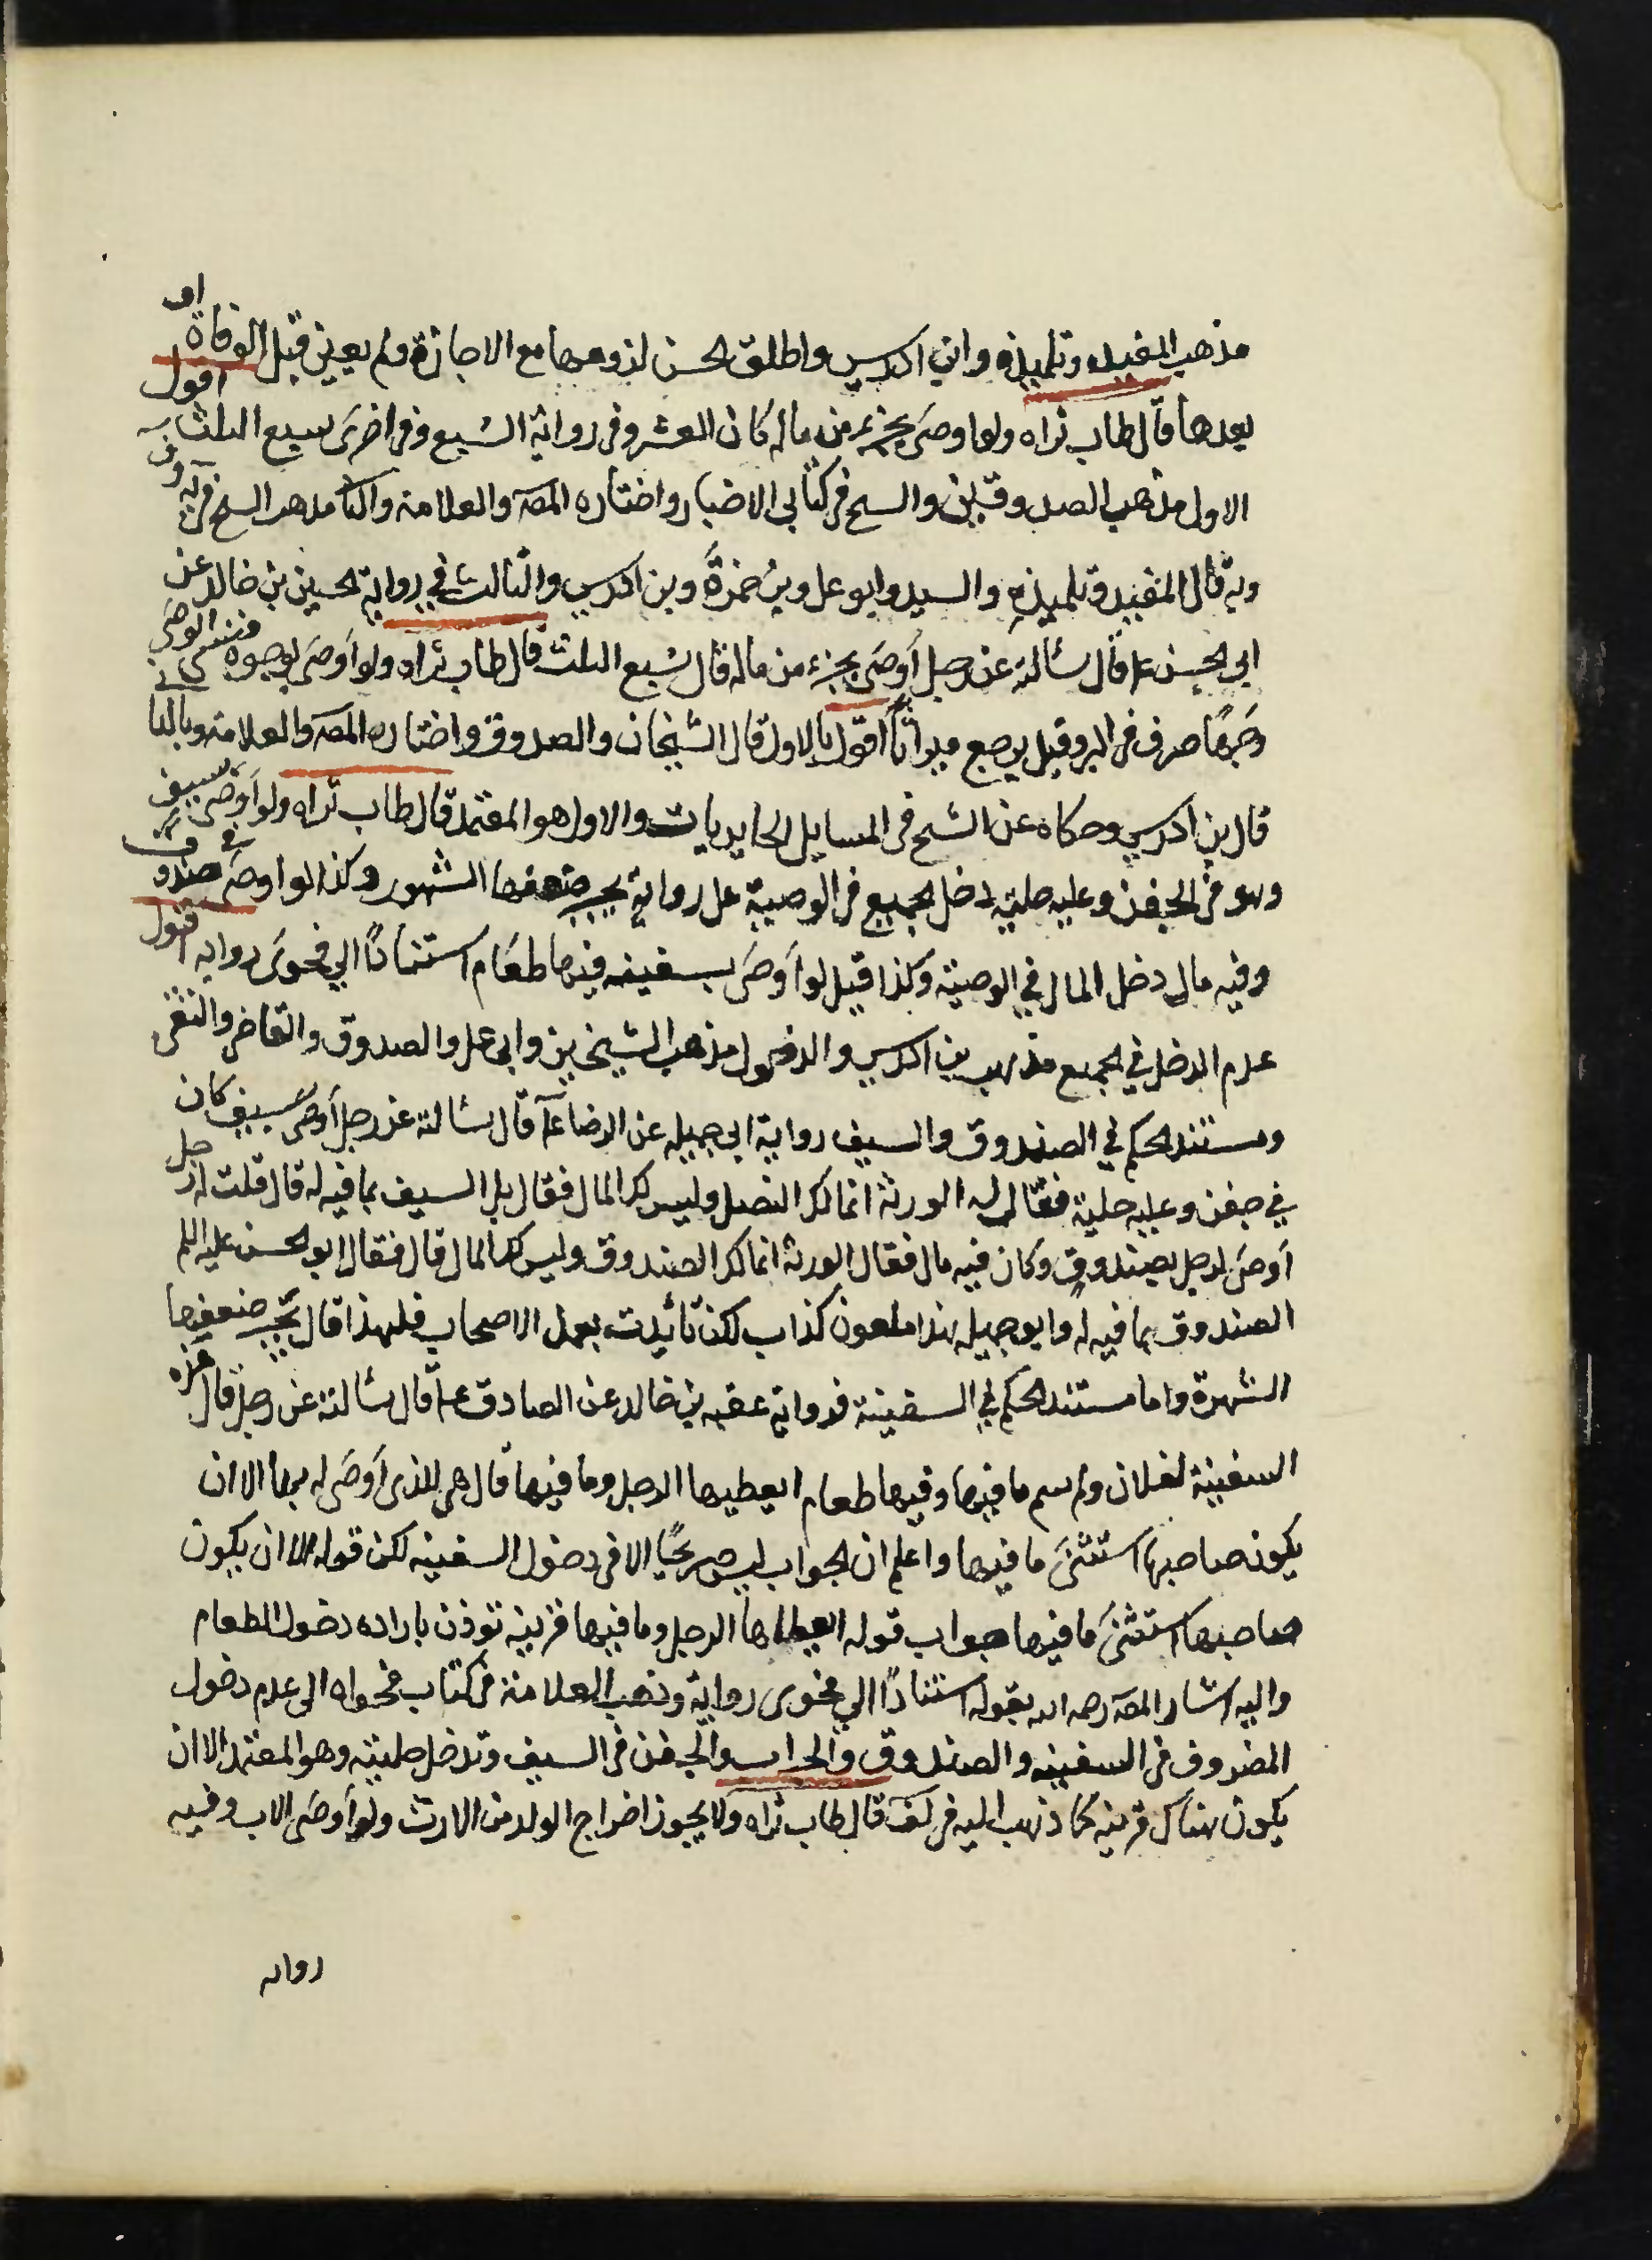 مذهب المفيد وتلميذه وابن ادريس واطلق الحسن لزومها مع الاجازة ولم يعين قبل الوفاة او
بعدها قال طاب ثراه ولو اوصى بجزء من ماله كان العشر وفى رواية السبع وفى اخرى سبع الثلث اقول
الاول مذهب الصدوقين والشيخ فى كتابى الاخبار واختاره المصَ والعلامة والثانى مذهب الشيخ فى يه وف
وبه قال المفيد وتلميذه والسيد وابو على وبن حمزة وبن ادريس والثالث في رواية الحسين بن خالد عن
ابى الحسن عا قال سئالته عن رجل أوصَى بجزء من ماله قال سُبع الثلث قال طاب ثراه ولو أوصَى بوجوه فنسى الوصى
وَجهًا صرف فى البر وقيل يرجع ميراثًا اقول بالاول قال الشيخان والصدوق واختاره المصَ والعلامة وبالثانى
قال بن ادريس وحكاه عن الشيخ فى المسايل الحايريات والاول هو المعتمد قال طاب ثراه ولو أوصَى بسيف
وهو فى الجفن وعليه حلية دخل الجميع فى الوصية على رواية يجبر ضعفها الشهور وكذا لو اوصَى بصندوق
وفيه مال دخل المال في الوصية وكذا قيل لو أوصَى بسفينه فيها طعَام استنادًا الي فحوَى روايه اقول
عدم الدخل في الجميع مذهب بن ادريس والدخول مذهب الشيخين وابى على والصدوق والقاضى والتقى
ومستند الحكم في الصندوق والسيف رواية ابى جميله عن الرضا عآ قال سئالته عن رجل أوصَى بسيف كان
في جفن وعليه حلية فقال له الورثة انما لك النصل وليس لك المال فقال بل السيف بما فيه له قال قلت له رجل
أوصَى لرجل بصندوق وكان فيه مال فقال الورثة انما لك الصندوق وليس لك المال قال فقال ابو الحسن عليه السلم
الصندوق بما فيه له وابو جميله هذا ملعون كذاب لكن تأيدت بعمل الاصحاب فلهذا قال يجبر ضعفها
الشهرة واما مستند الحكم في السفينة فرواية عقبه بن خالد عن الصادق عا قال سئالته عن رجل قال هذه
السفينة لفلان ولم يسم ما فيها وفيها طعام ايعطيها الرجل وما فيها قال هى للذى أوصَى له بها الا ان
يكون صاحبها استثنَى ما فيها واعلم ان الجواب ليس صريحًا الا فى دخول السفينه لكن قوله الا ان يكون
صاحبها استثنَى ما فيها جواب قوله ايعطاها الرجل وما فيها قرينه توذن باراده دخول الطعام
واليه اشار المصَ رحمه الله بقوله استنادًا الي فحوى رواية وذهب العلامة فى كتاب فحواه الى عدم دخول
المضروف فى السفينه والصندوق والجراب والجفن فى السيف وتدخل حليته وهو المعتمد الا ان
يكون هناك قرينه كما ذهب اليه فى لف قال طاب ثراه ولا يجوز اخراج الولد من الارث ولو أوصَى الاب وفيه
روايه